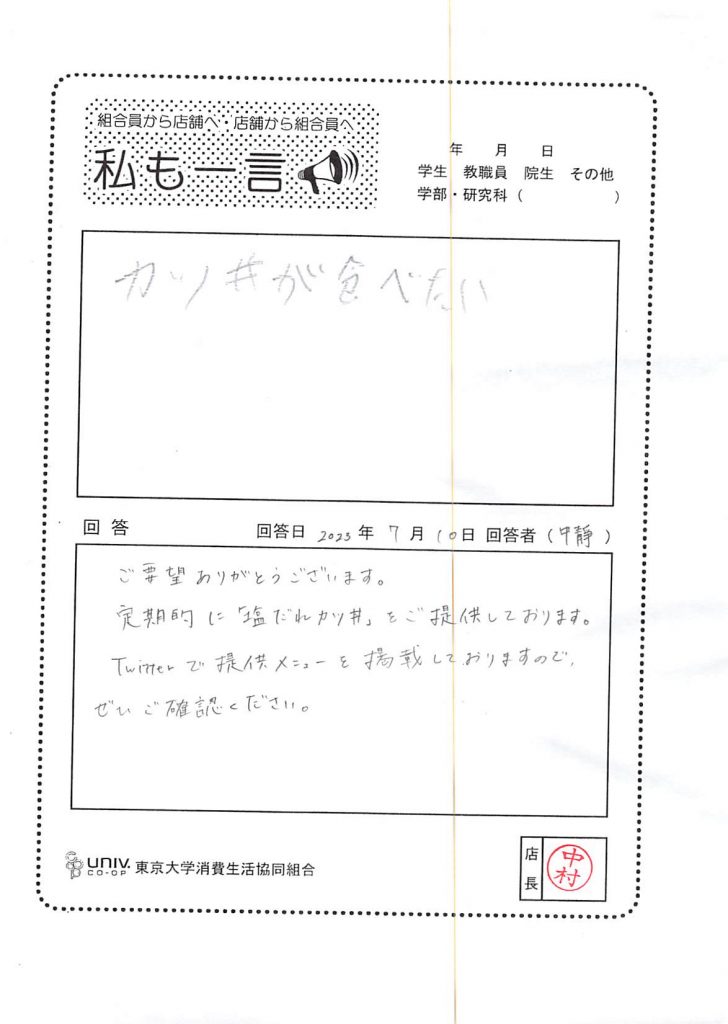 組合員から店舗へ・店舗から組合員へ
私も一言
年 月 日
学生 教職員 院生 その他
学部・研究科( )
カツ丼が食べたい
回答 回答日 2023年 7月 10日 回答者(中靜)
ご要望ありがとうございます。
定期的に「塩だれカツ丼」をご提供しております。
Twitterで提供メニューを掲載しておりますので、
ぜひご確認ください。
UNIV.
CO-OP
東京大学消費生活協同組合
店長
中村